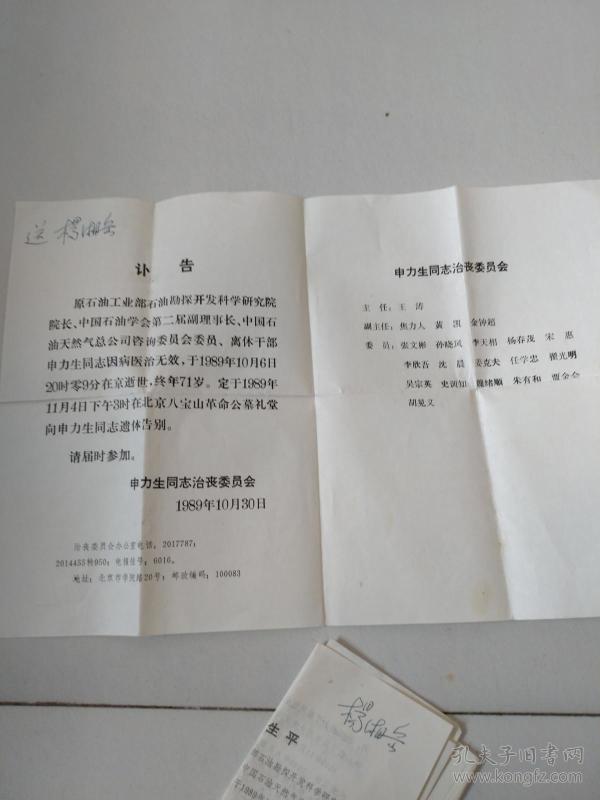 送 杨湘岳
讣 告
原石油工业部石油勘探开发科学研究院
院长、中国石油学会第二届副理事长、中国石
油天然气总公司咨询委员会委员、离休干部
申力生同志因病医治无效，于1989年10月6日
20时零9分在京逝世，终年71岁。定于1989年
11月4日下午3时在北京八宝山革命公墓礼堂
向申力生同志遗体告别。
请届时参加。
申力生同志治丧委员会
1989年10月30日
治丧委员会办公室电话：2017787；
2014455转950；电报挂号：6016。
地址：北京市学院路20号；邮政编码：100083
申力生同志治丧委员会
主 任：王 涛
副主任：焦力人 黄 凯 金钟超
委 员：张文彬 孙晓风 李天相 杨存茂 宋 惠
李欣吾 沈 晨 姜克夫 任学忠 翟光明
吴宗英 史训知 魏绪顺 朱有和 贾金会
胡见义
杨湘岳
生 平
石油勘探开发科学研
中国石油天然气总
于1989年
孔夫子旧书网
www.kongfz.com